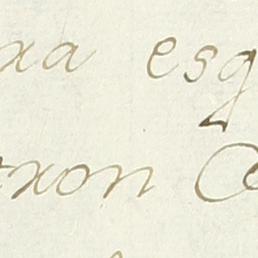 xa esq
xon